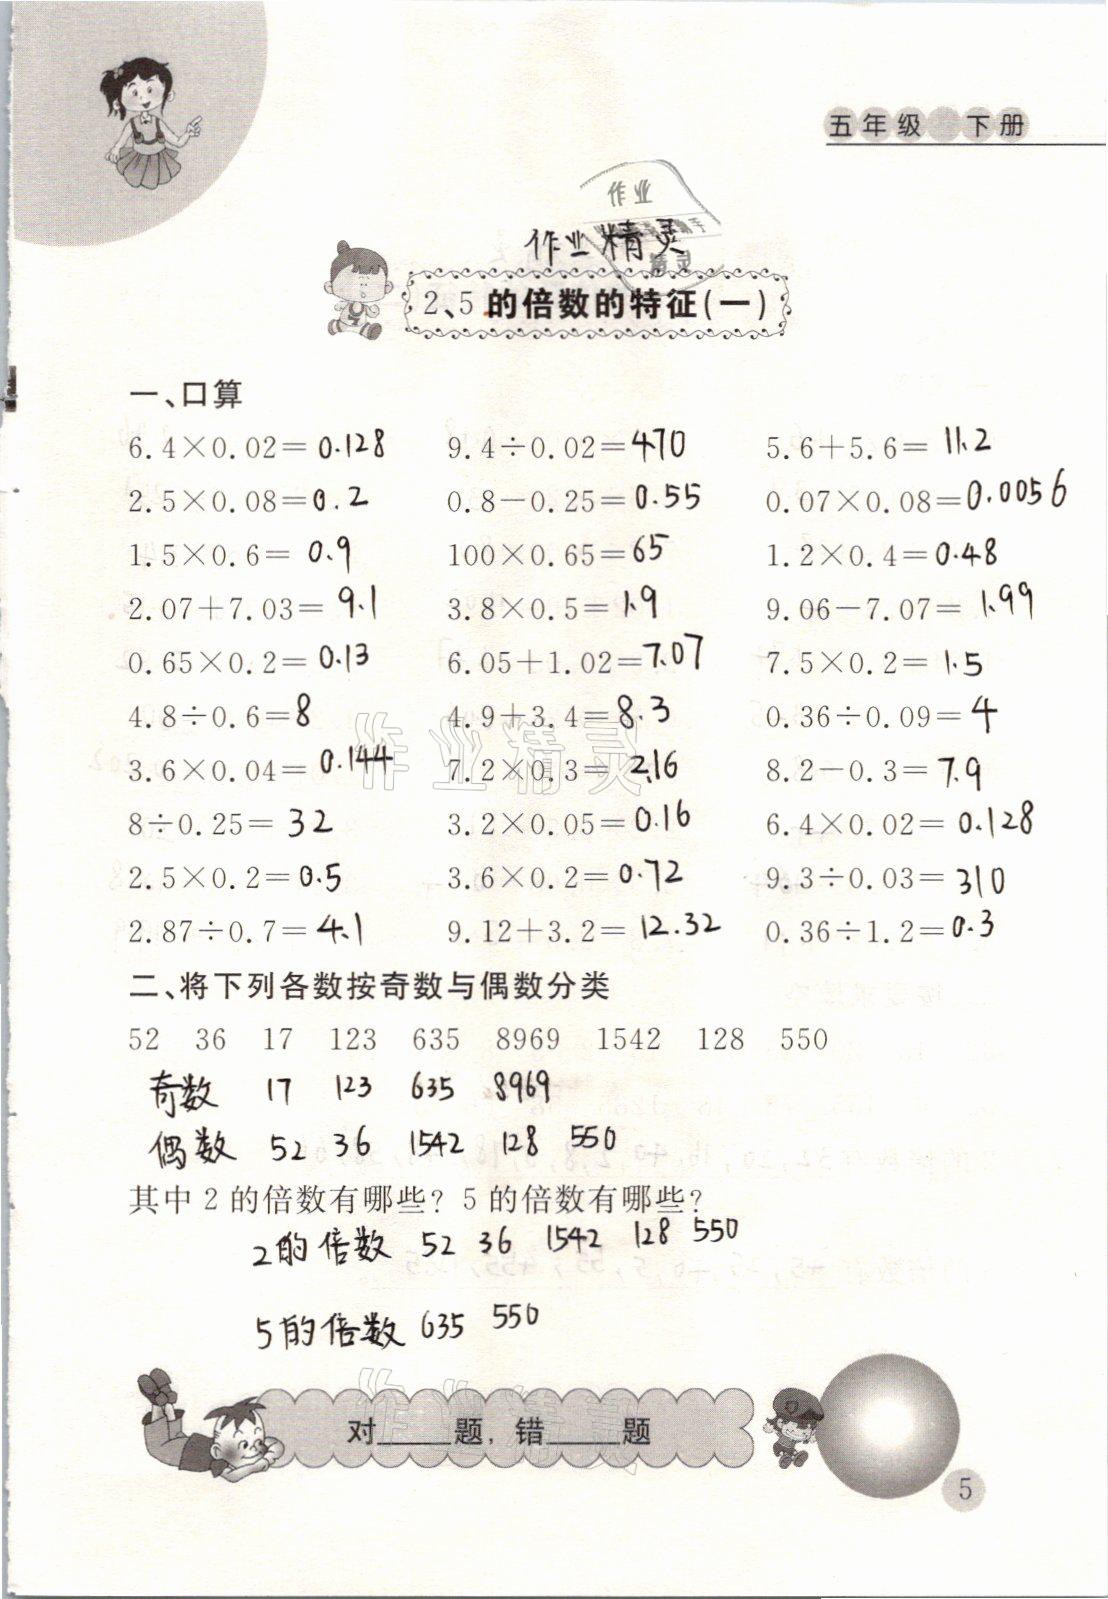 五年级 下册
作业
精灵
作业精灵
2、5的倍数的特征(一)
一、口算
6.4×0.02=0.128 9.4÷0.02=470 5.6+5.6=11.2
2.5×0.08=0.2 0.8-0.25=0.55 0.07×0.08=0.0056
1.5×0.6=0.9 100×0.65=65 1.2×0.4=0.48
2.07+7.03=9.1 3.8×0.5=1.9 9.06-7.07=1.99
0.65×0.2=0.13 6.05+1.02=7.07 7.5×0.2=1.5
4.8÷0.6=8 4.9+3.4=8.3 0.36÷0.09=4
作业精灵
3.6×0.04=0.144 7.2×0.3=2.16 8.2-0.3=7.9
8÷0.25=32 3.2×0.05=0.16 6.4×0.02=0.128
2.5×0.2=0.5 3.6×0.2=0.72 9.3÷0.03=310
2.87÷0.7=4.1 9.12+3.2=12.32 0.36÷1.2=0.3
二、将下列各数按奇数与偶数分类
52 36 17 123 635 8969 1542 128 550
奇数 17 123 635 8969
偶数 52 36 1542 128 550
其中2的倍数有哪些?5的倍数有哪些?
2的倍数 52 36 1542 128 550
5的倍数 635 550
作业精灵
对____题,错____题
5